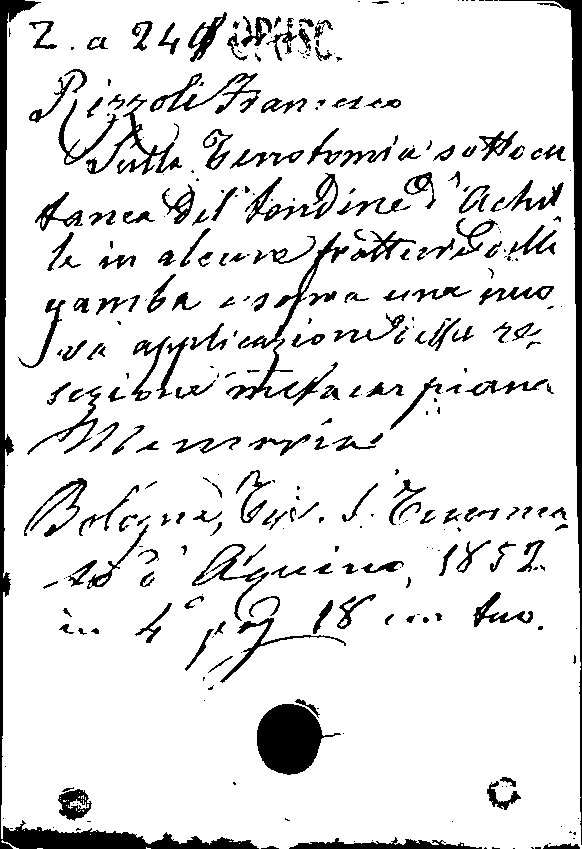 Z. a 240 OPUSC.
Rizzoli Francesco
Sulla Tenotomia sottocu
tanea del tendine d'Achil
le in alcune fratture della
gamba e sopra una nuo
va applicazione della re-
sezione metacarpiana
Memoria
Bologna, Tip. S. Tommas
so d'Aquino, 1852
in 4° pag 18 con tav.